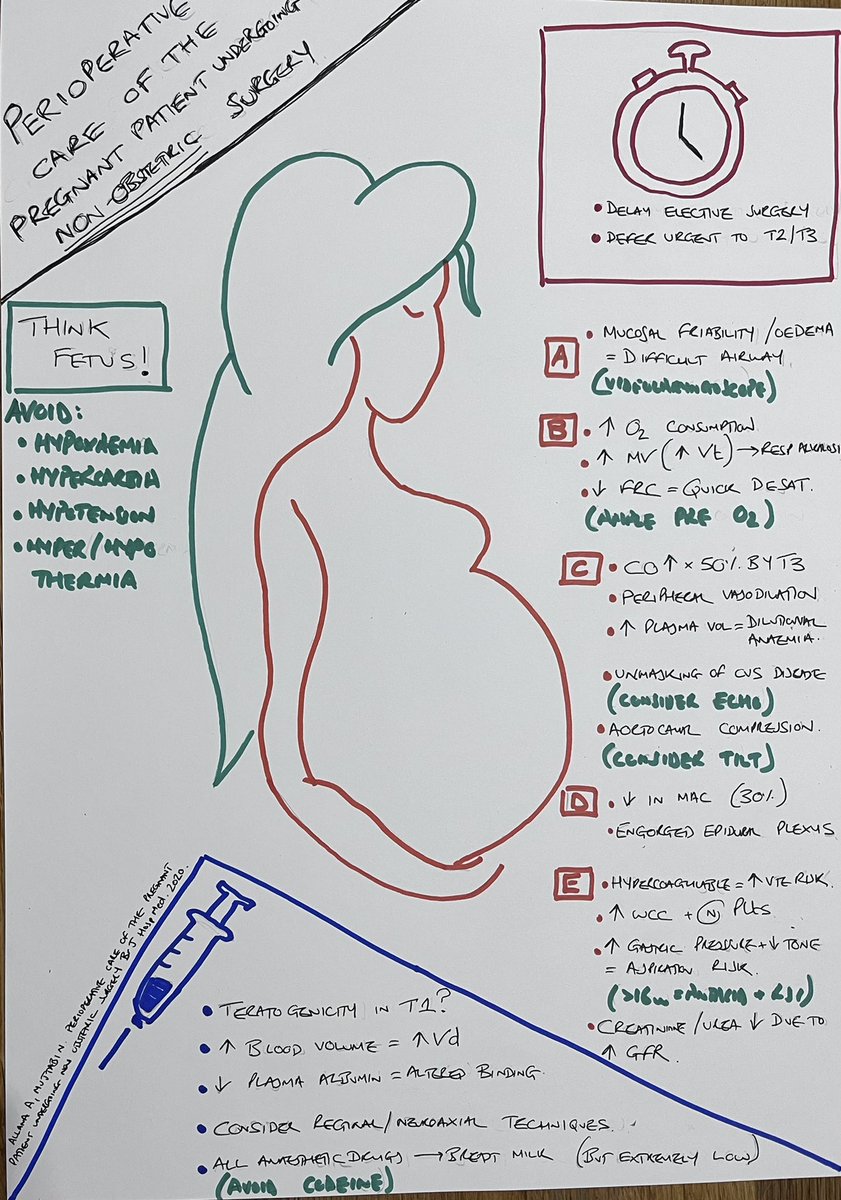 PERIOPERATIVE
CARE OF THE
PREGNANT PATIENT UNDERGOING
NON-OBSTETRIC SURGERY
• DELAY ELECTIVE SURGERY
• DEFER URGENT TO T2/T3
THINK
FETUS!
AVOID:
• HYPOXAEMIA
• HYPERCARBIA
• HYPOTENSION
• HYPER/HYPO
THERMIA
A
• MUCOSAL FRIABILITY/OEDEMA
= DIFFICULT AIRWAY
(VIDEOLARYNGOSCOPE)
B
• ↑ O2 CONSUMPTION
• ↑ MV (↑ Vt) → RESP ALKALOSI
• ↓ FRC = QUICK DESAT.
(AMPLE PRE O2)
C
• CO ↑ × 50% BY T3
• PERIPHERAL VASODILATION
• ↑ PLASMA VOL = DILUTIONAL
ANAEMIA.
• UNMASKING OF CVS DISEASE
(CONSIDER ECHO)
• AORTOCAVAL COMPRESSION.
(CONSIDER TILT)
D
• ↓ IN MAC (30%)
• ENGORGED EPIDURAL PLEXUS
E
• HYPERCOAGULABLE = ↑ VTE RISK.
• ↑ WCC + (N) PLTS
• ↑ GASTRIC PRESSURE + ↓ TONE
= ASPIRATION RISK.
(>16w = ANTACID + RSI)
• CREATININE/UREA ↓ DUE TO
↑ GFR.
ALLANA A, MUJTABIN. PERIOPERATIVE CARE OF THE PREGNANT
PATIENT UNDERGOING NON OBSTETRIC SURGERY BR J HOSP MED. 2020.
• TERATOGENICITY IN T1?
• ↑ BLOOD VOLUME = ↑ Vd
• ↓ PLASMA ALBUMIN = ALTERED BINDING.
• CONSIDER REGIONAL/NEUROAXIAL TECHNIQUES.
• ALL ANAESTHETIC DRUGS → BREAST MILK (BUT EXTREMELY LOW)
(AVOID CODEINE)